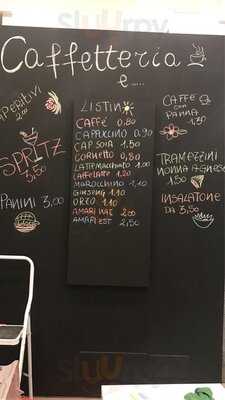 Caffetteria
e....
APERITIVI
2.00
SPRITZ
3,50
PANINI 3,00
LISTINO
CAFFÈ 0,80
CAPPUCCINO 0,90
CAP SOIA 1.50
CORNETTO 0,80
LATTE MACCHIATO 1.20
CAFFELATTE 1.20
MAROCCHINO 1.10
GINSENG 1.10
ORZO 1.10
AMARI NAZ 2.00
AMARI EST 2,50
CAFFÈ
CON
PANNA
1,30
TRAMEZZINI
NONNA AGNESE
1.50
INSALATONE
DA 3,50
sluurpy